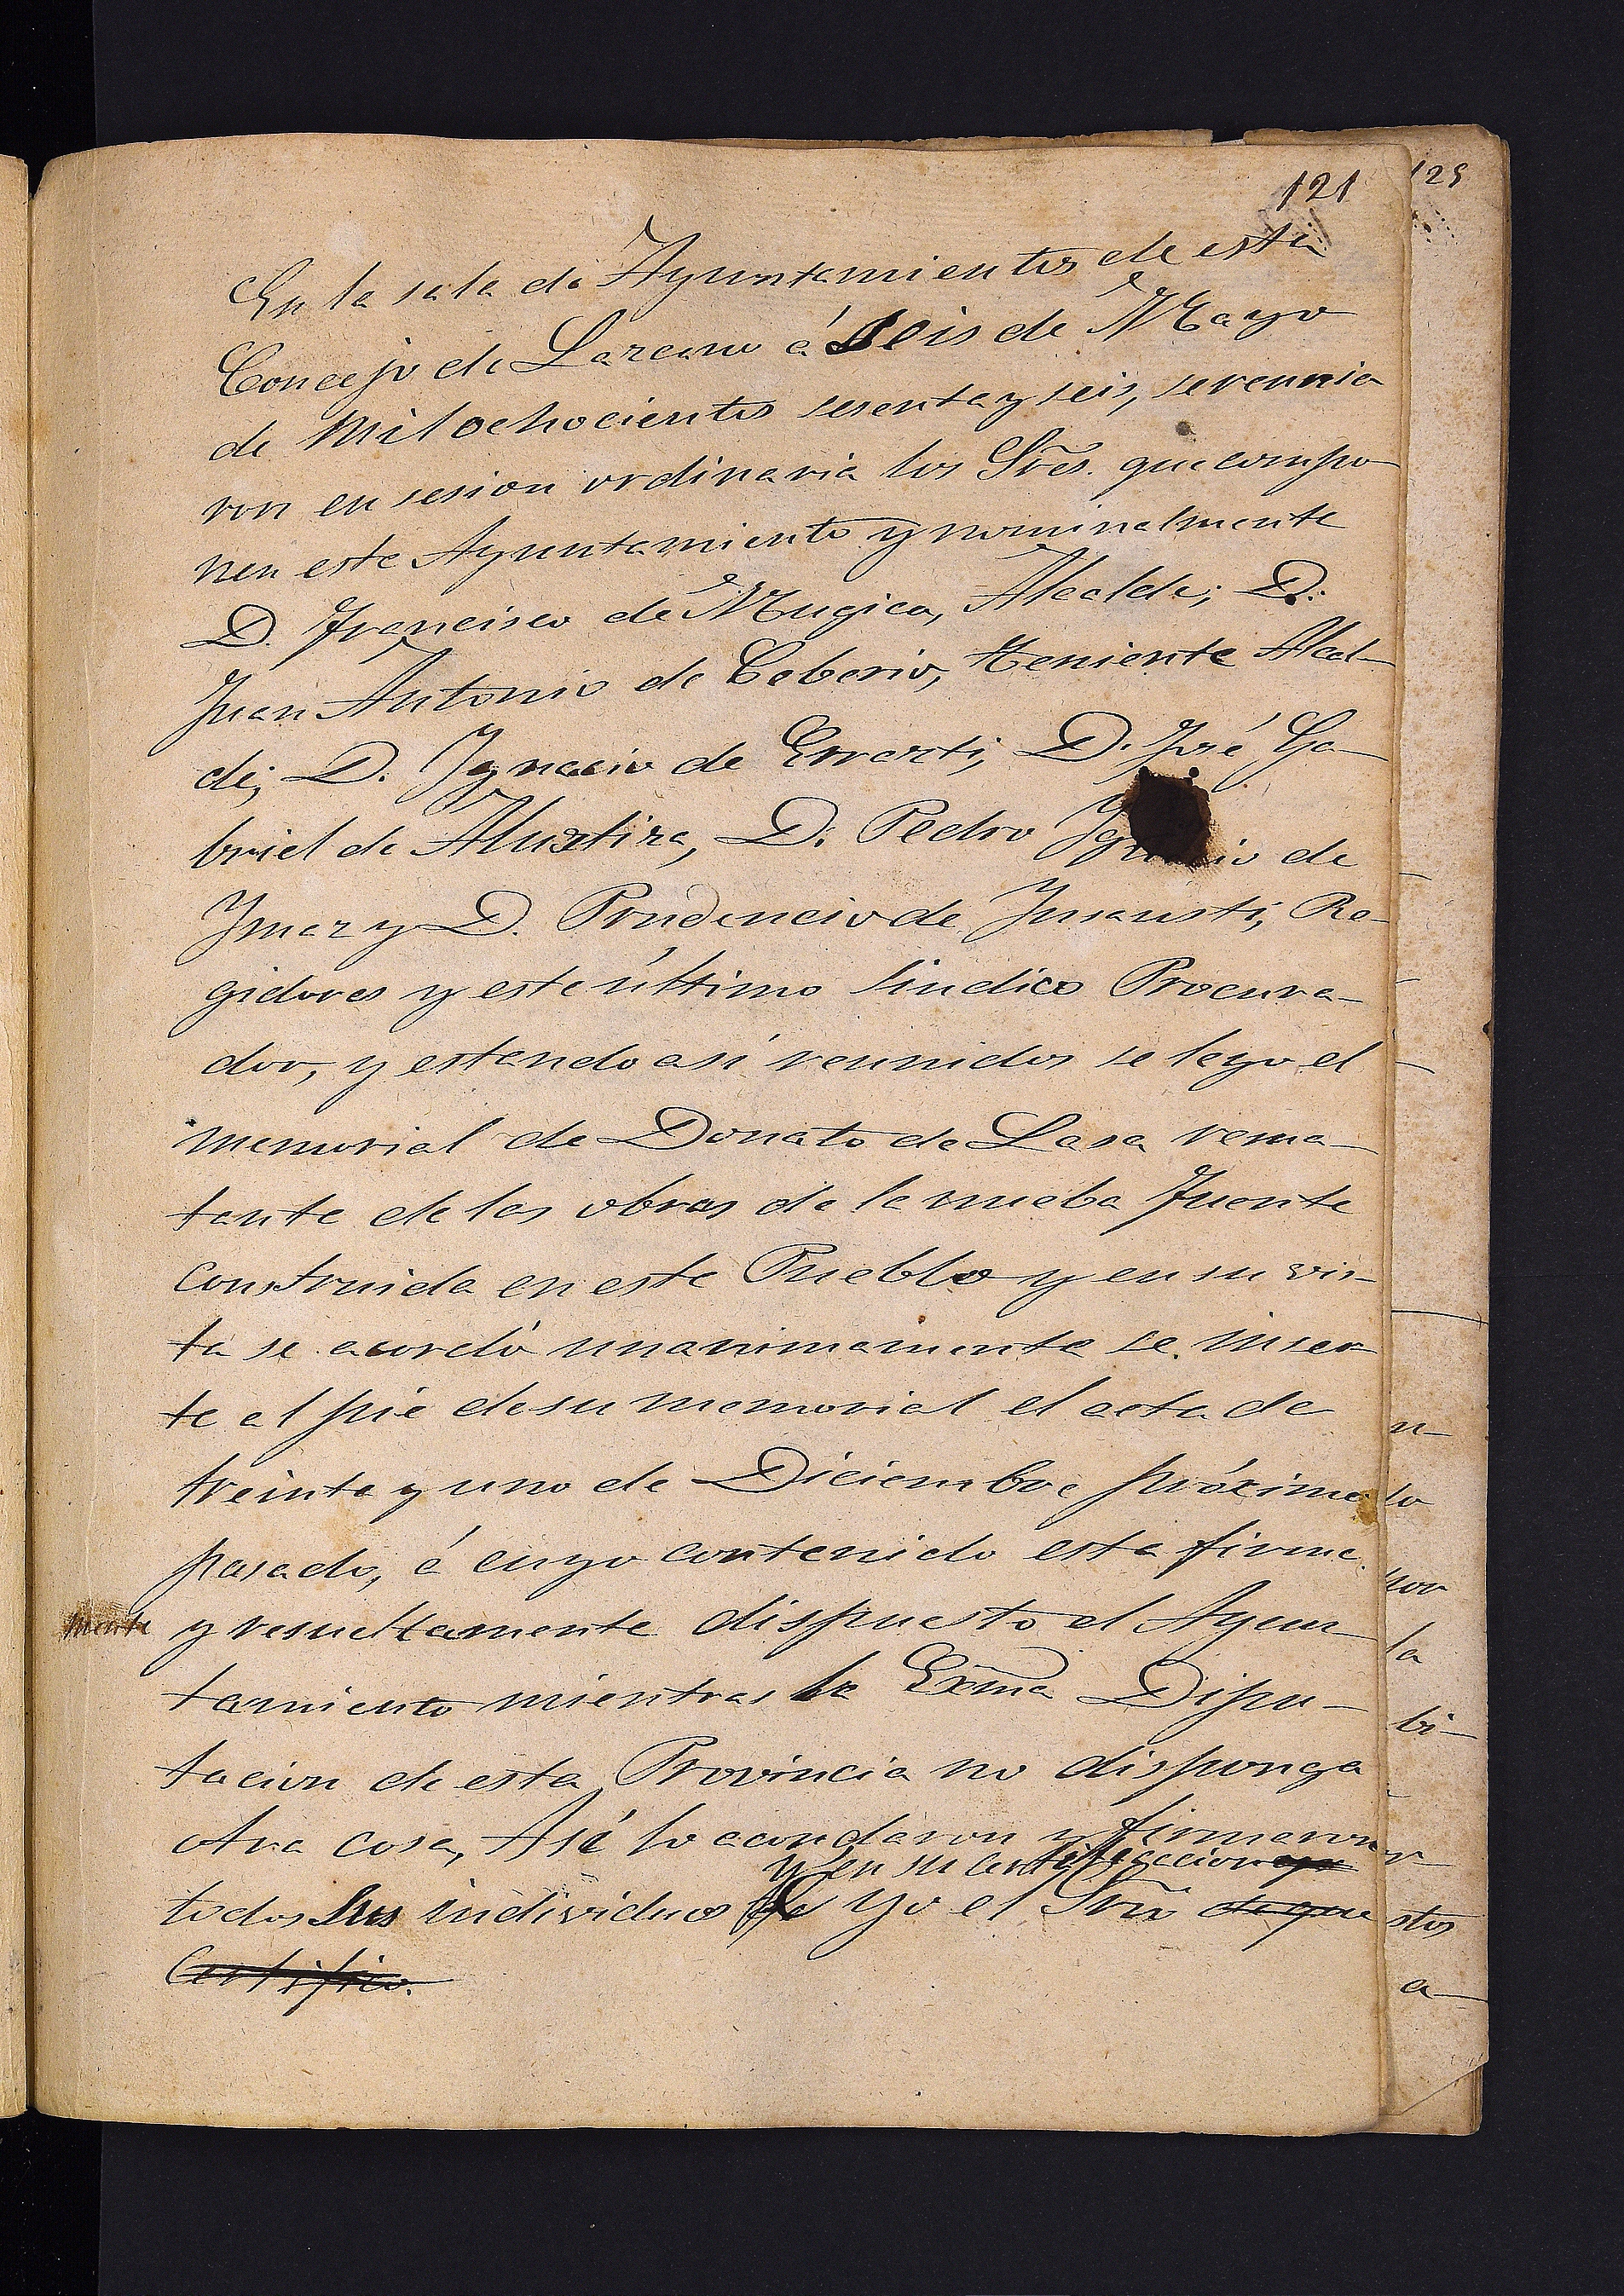 121
125
En la sala de Ayuntamientos de esta
Concejo de Lazcano á Seis de Mayo
de Mil ochocientos sesenta y seis, se reunie
ron en sesion ordinaria los Sres. que compo
nen este Ayuntamiento y nominalmente
D. Francisco de Mugica, Alcalde; D.
Juan Antonio de Ceberio, teniente Alcal-
de; D. Ygnacio de Errazti, D. José Ga-
briel de Alustiza, D. Pedro Ygnacio de
Ymaz y D. Prudencio de Ymausti, Re-
gidores y este último Sindico Procura-
dor, y estando así reunidos se leyo el
memorial de Donato de Lasa rema-
tante de las obras de la nueba Fuente
construida en este Pueblo y en su vis-
ta se acordó unanimamente se inser
te al pie de su memorial el acta de
treinta y uno de Diciembre próximo
pasado, á cuyo contenido esta firme
mente y resueltamente dispuesto el Ayun
tamiento mientras la Exma Dipu-
tacion de esta Provincia no disponga
otra cosa, Asi lo acordaron y firmaron
y en su certificacion
todos sus individuos de yo el Srio de que
Certifico.
n-
lo
por
la
bi-
r-
stos
a-